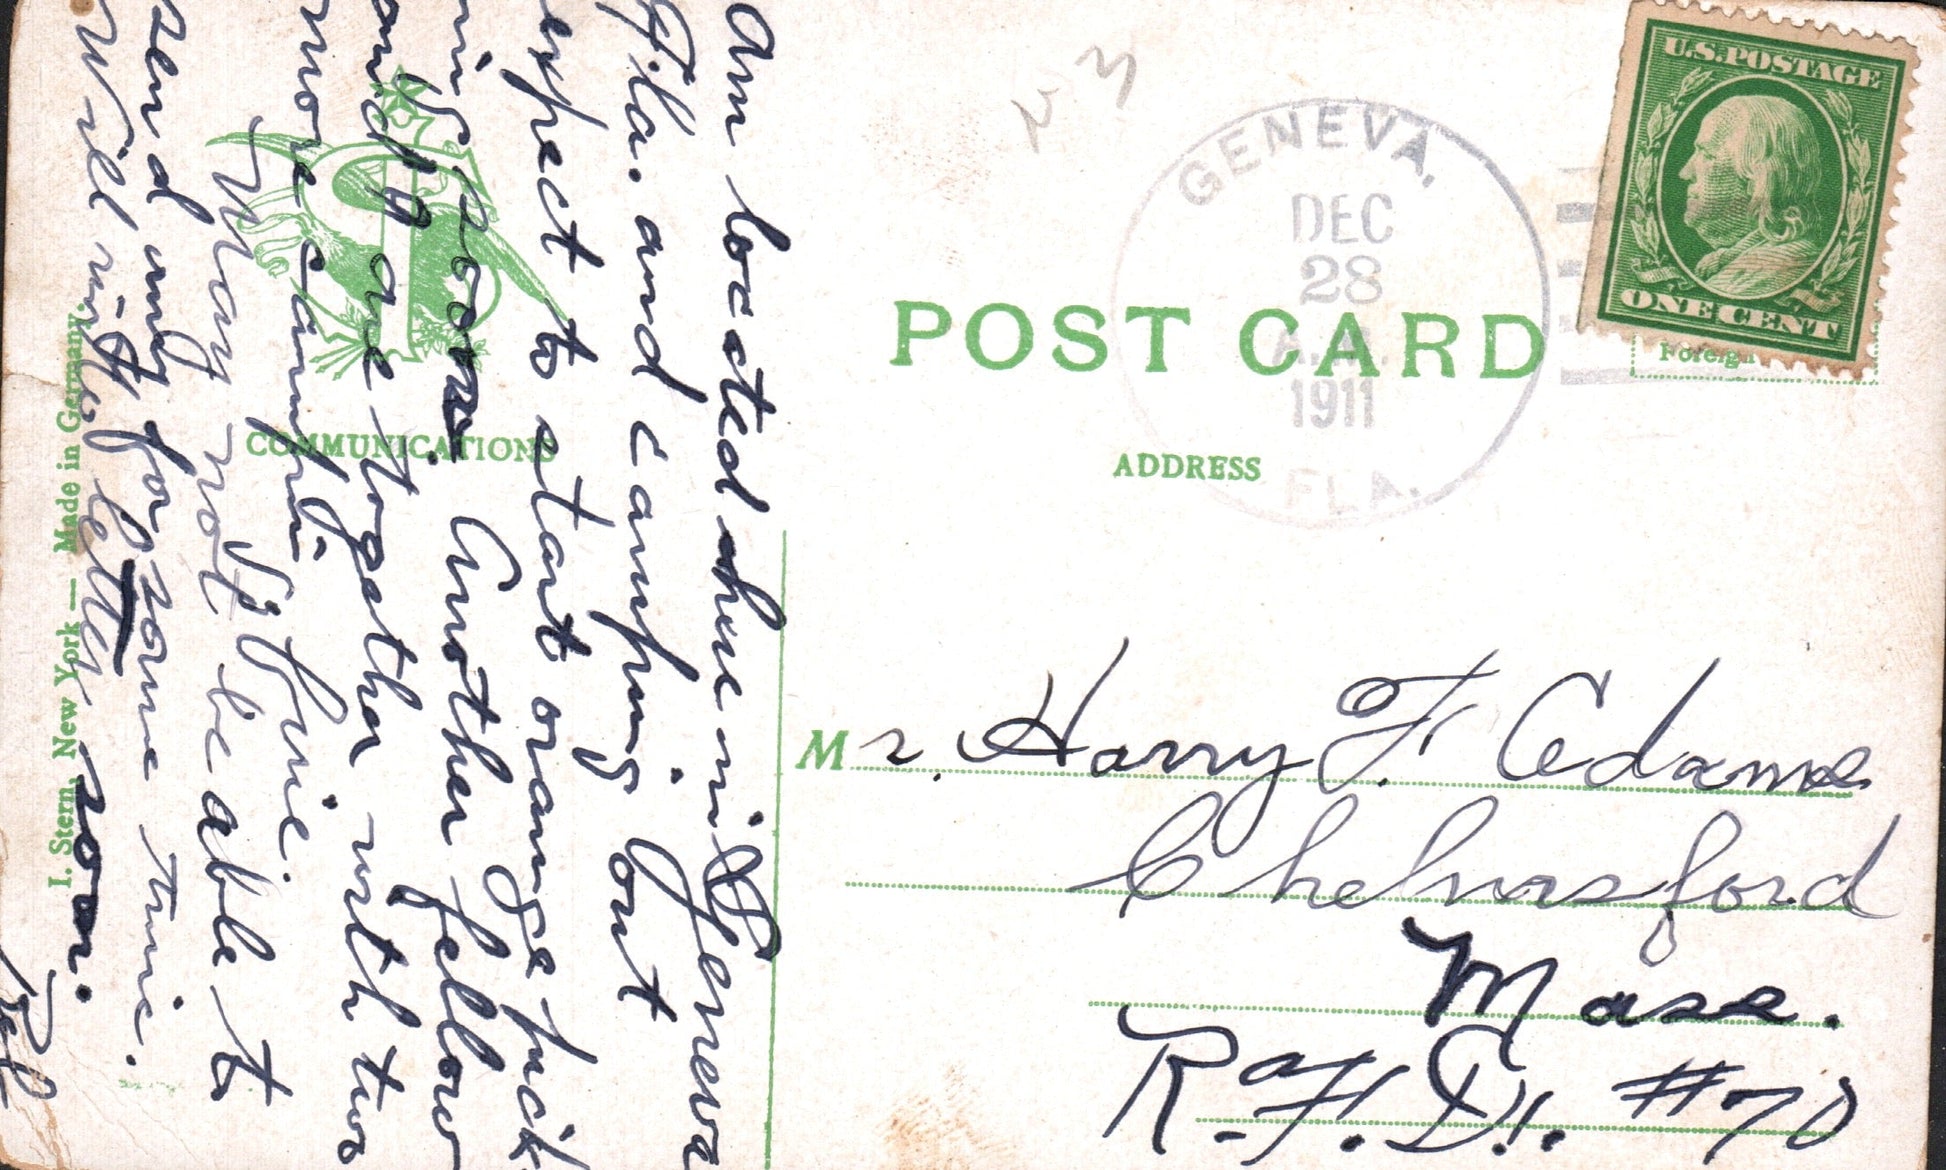 U.S. POSTAGE
ONE CENT
GENEVA.
DEC
28
A.M.
1911
FLA.
POST CARD
Foreign
COMMUNICATIONS
ADDRESS
I. Stern, New York — Made in Germany.
Am located here in Geneva
Fla. and camping out
expect to start orange pick
ing soon. Another fellow
and I are together with two
more camping
fine
May not be able to
send any for some time.
Will write letter soon.
Mr. Harry F. Adams
Chelmsford
Mass.
R.F.D. #70